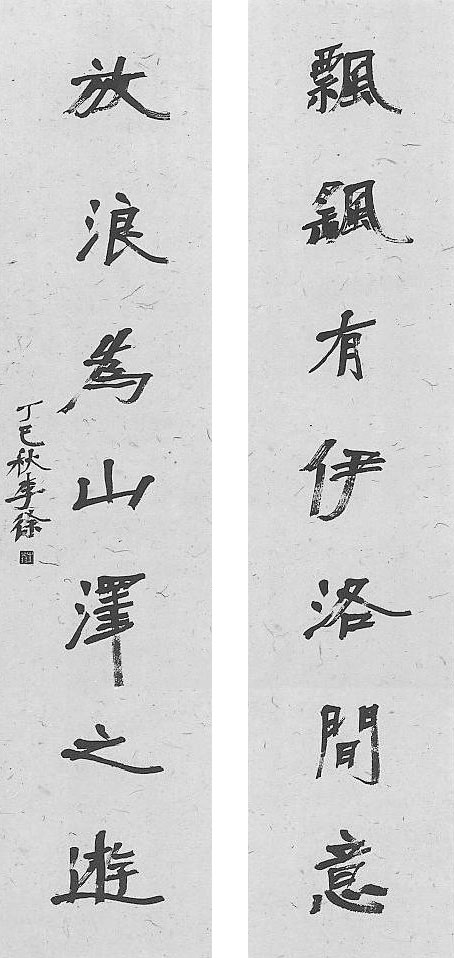 飄飖有伊洛間意
放浪為山澤之遊
丁巳秋李